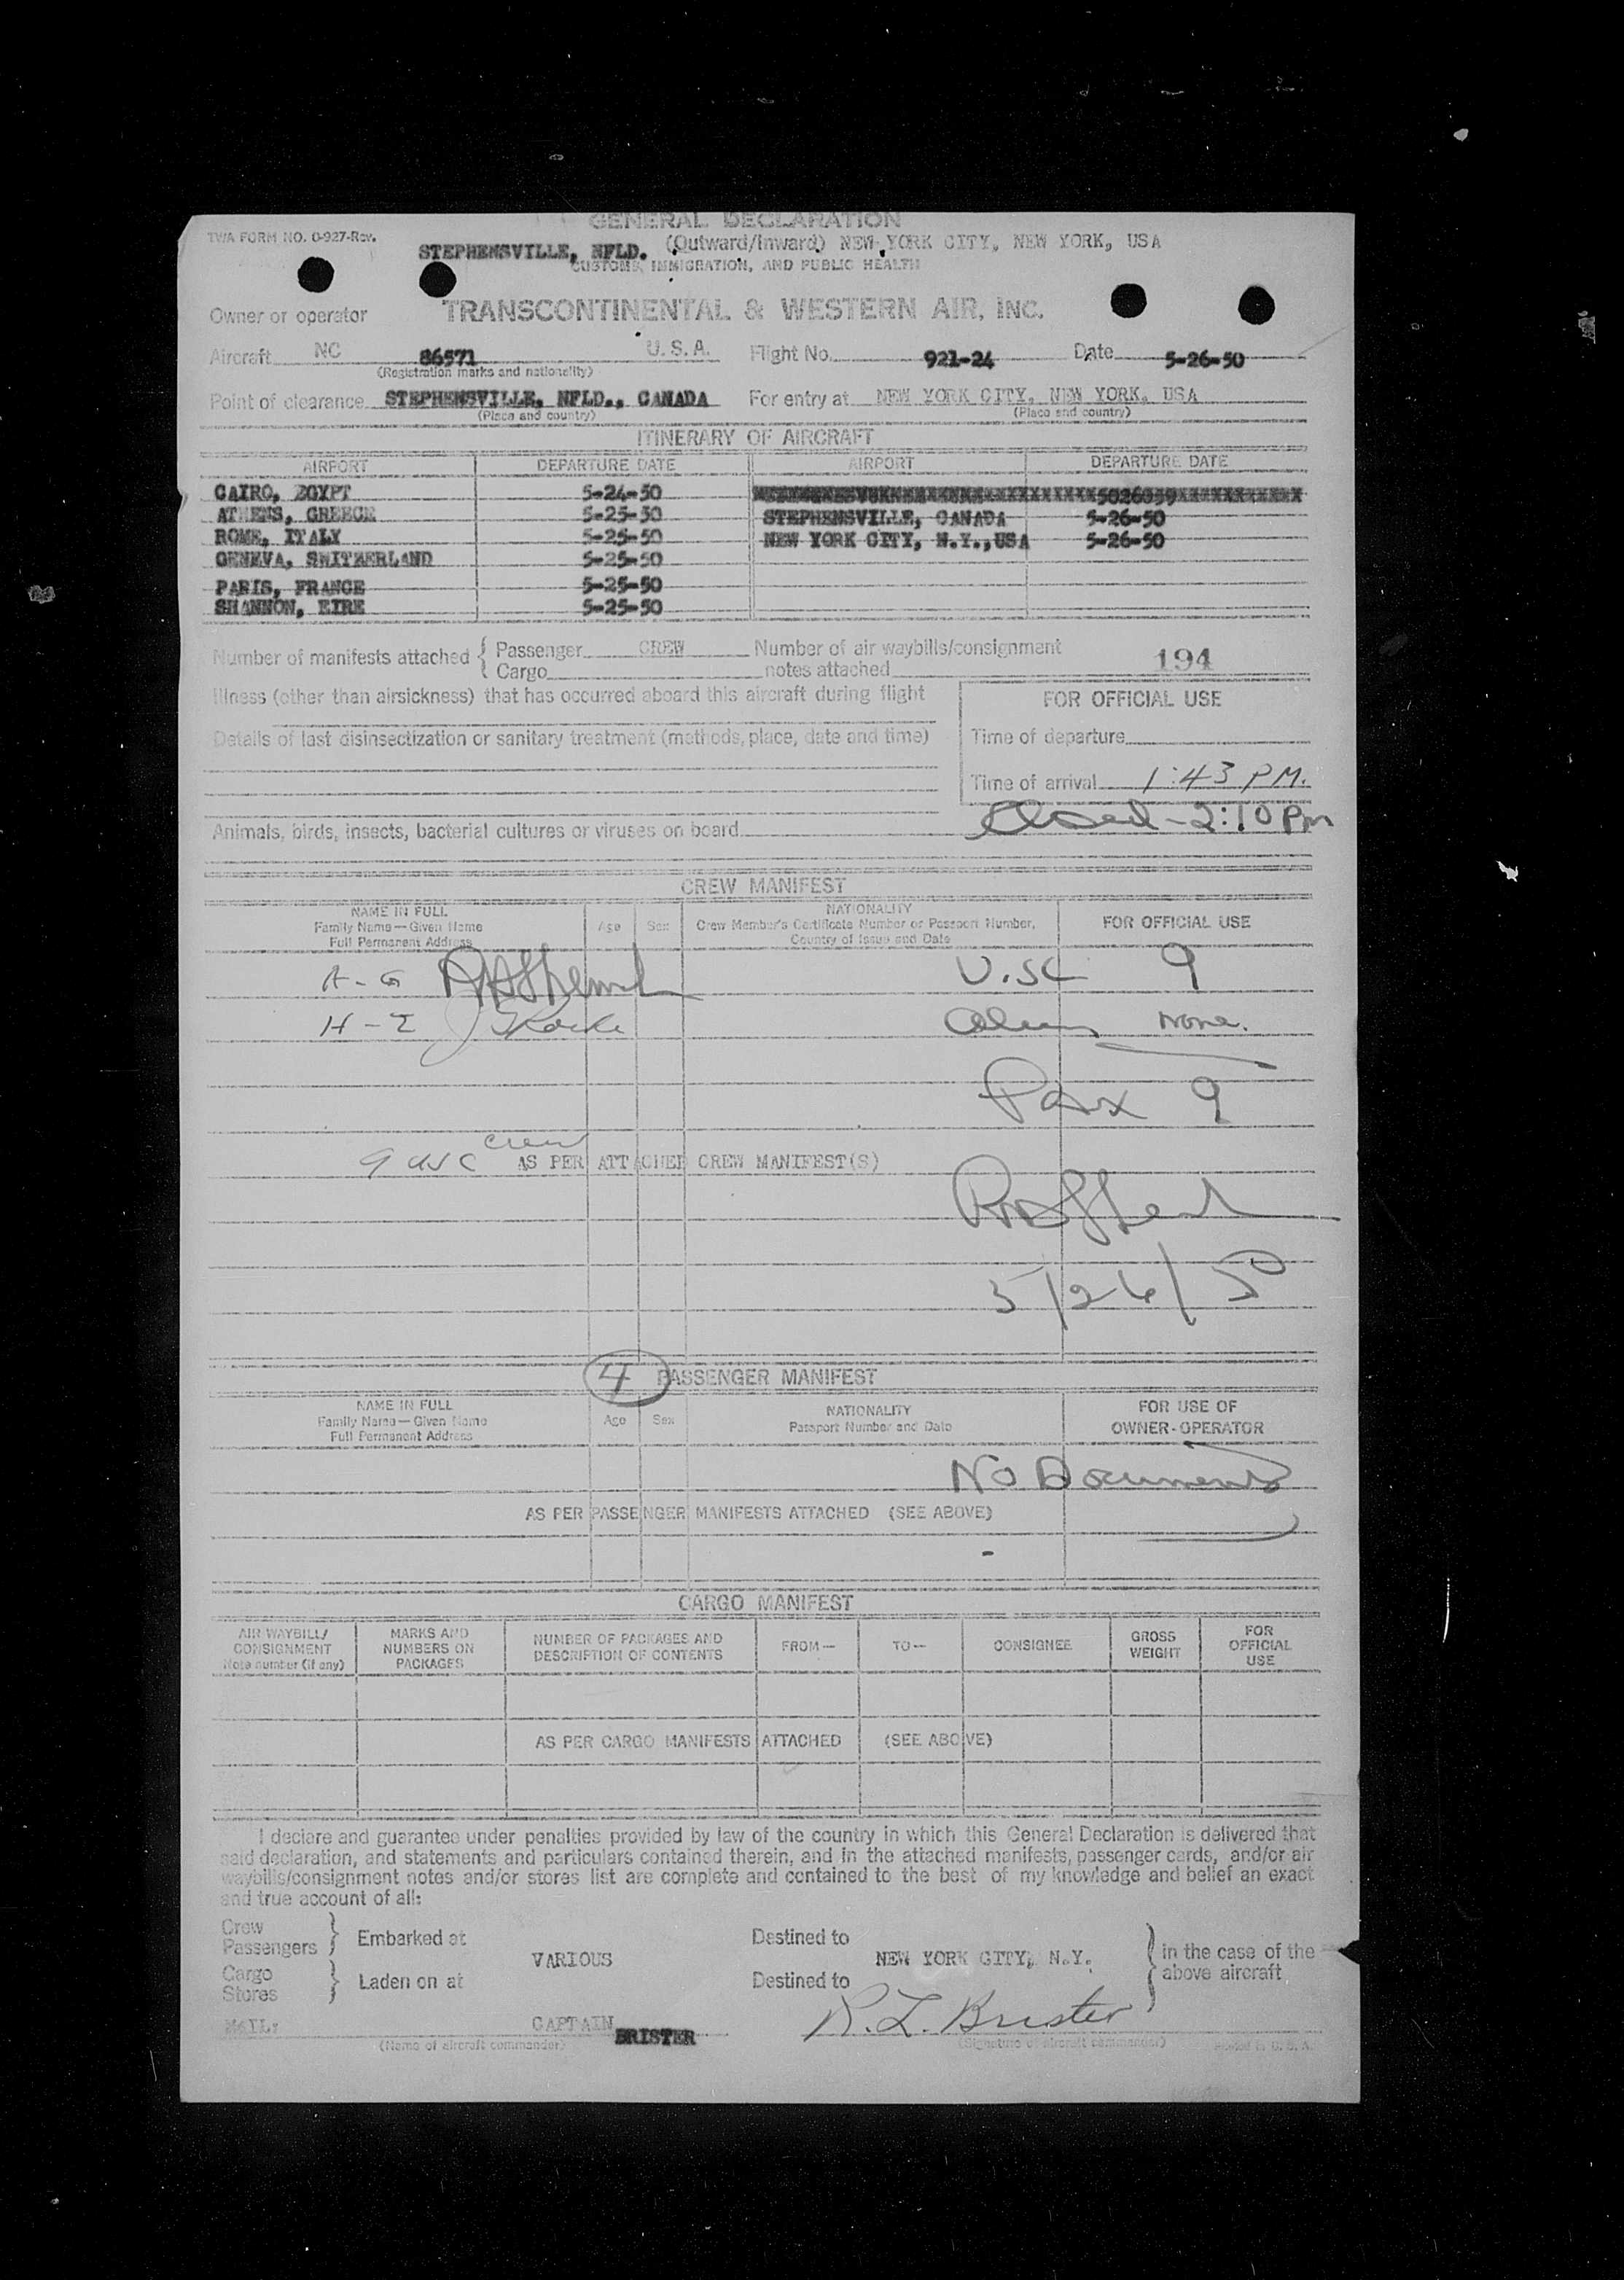 GENERAL DECLARATION
TWA FORM NO. O-927-Rev.
STEPHENSVILLE, NFLD. (Outward/Inward) NEW YORK CITY, NEW YORK, USA
CUSTOMS, IMMIGRATION, AND PUBLIC HEALTH
Owner or operator TRANSCONTINENTAL & WESTERN AIR, INC.
Aircraft NC 86571 U.S.A. Flight No. 921-24 Date 5-26-50
(Registration marks and nationality)
Point of clearance STEPHENSVILLE, NFLD., CANADA For entry at NEW YORK CITY, NEW YORK, USA
(Place and country) (Place and country)
ITINERARY OF AIRCRAFT
AIRPORT DEPARTURE DATE AIRPORT DEPARTURE DATE
CAIRO, EGYPT 5-24-50
ATHENS, GREECE 5-25-50 STEPHENSVILLE, CANADA 5-26-50
ROME, ITALY 5-25-50 NEW YORK CITY, N.Y.,USA 5-26-50
GENEVA, SWITZERLAND 5-25-50
PARIS, FRANCE 5-25-50
SHANNON, EIRE 5-25-50
Number of manifests attached { Passenger CREW Number of air waybills/consignment
Cargo notes attached 194
Illness (other than airsickness) that has occurred aboard this aircraft during flight FOR OFFICIAL USE
Details of last disinsectization or sanitary treatment (methods, place, date and time) Time of departure
Time of arrival 1:43 PM.
Closed - 2:10 Pm
Animals, birds, insects, bacterial cultures or viruses on board
CREW MANIFEST
NAME IN FULL
Family Name—Given Name
Full Permanent Address
Age Sex
NATIONALITY
Crew Member's Certificate Number or Passport Number,
Country of Issue and Date
FOR OFFICIAL USE
A-G U.SC 9
H-Z None.
Pax 9
crew
9 USC AS PER ATTACHED CREW MANIFEST(S)
5/26/50
4 PASSENGER MANIFEST
NAME IN FULL
Family Name—Given Name
Full Permanent Address
Age Sex
NATIONALITY
Passport Number and Date
FOR USE OF
OWNER-OPERATOR
No Documents
AS PER PASSENGER MANIFESTS ATTACHED (SEE ABOVE)
CARGO MANIFEST
AIR WAYBILL/
CONSIGNMENT
Note number (if any)
MARKS AND
NUMBERS ON
PACKAGES
NUMBER OF PACKAGES AND
DESCRIPTION OF CONTENTS
FROM—
TO—
CONSIGNEE
GROSS
WEIGHT
FOR
OFFICIAL
USE
AS PER CARGO MANIFESTS ATTACHED (SEE ABOVE)
I declare and guarantee under penalties provided by law of the country in which this General Declaration is delivered that
said declaration, and statements and particulars contained therein, and in the attached manifests, passenger cards, and/or air
waybills/consignment notes and/or stores list are complete and contained to the best of my knowledge and belief an exact
and true account of all:
Crew
Passengers } Embarked at Destined to
VARIOUS NEW YORK CITY, N.Y. } in the case of the
above aircraft
Cargo
Stores } Laden on at Destined to
MAIL: CAPTAIN BRISTER R. L. Brister
(Name of aircraft commander) (Signature of aircraft commander) Printed in U. S. A.